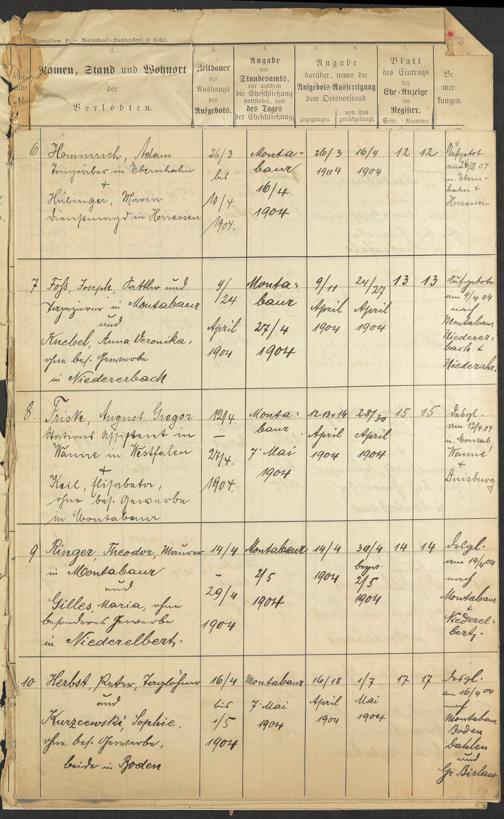 Namen, Stand und Wohnort
der
Verlobten.
Zeitdauer
des
Aushangs
des
Aufgebots.
Angabe
des
Standesamts,
vor welchem
die Eheschließung
stattfindet, und
des Tages
der Eheschließung
Angabe
darüber, wann die
Aufgebots-Ausfertigung
dem Ortsvorstand
zugegangen.
von ihm
zurückgelangt.
Blatt
des Eintrags
der
Ehe-Anzeige
im
Register.
Seite. Nummer.
Be-
mer-
kungen.
6
Hommrich, Adam
Tongräber in Ebernhahn
+
Hübinger, Maria
Dienstmagd in Horressen
26/3
bis
10/4
1904.
Monta-
baur
16/4
1904
26/3
1904
16/4
1904
12 12
Aufgebot
am 26/3 04
n. Ebern-
hahn +
Horressen
7
Foß, Joseph, Sattler und
Tapezierer in Montabaur
und
Knebel, Anna Veronika,
ohne bes. Gewerbe
in Niedererbach
9/
24
April
1904
Monta-
baur
27/4
1904
9/11
April
1904
24/27
April
1904
13 13
Aufgebote
am 9/4 04
nach
Montabaur
Niederer-
bach +
Niederahr.
8.
Friske, August Gregor
Stations Assistent in
Wanne in Westfalen
+
Keil, Elisabeta,
ohne bes. Gewerbe
in Montabaur
12/4.
–
27/4.
1904.
Monta-
baur
7. Mai
1904
12 13+14
April
1904
28/30
April
1904
15 15
Desgl.
am 12/4 04
n. Montab.
Wanne
+
Duisburg
9
Ringer, Theodor, Maurer
in Montabaur
und
Gilles, Maria, ohne
besonderes Gewerbe
in Niederelbert.
14/4
-
29/4
1904
Montabaur
2/5
1904
14/4
1904
30/4
bezw.
2/5
1904
14 14
Desgl.
am 14/4 04
nach
Montabaur
+
Niederel-
bert.
10
Herbst, Peter, Taglöhner
und
Kurzcewski, Sophie,
ohne bes. Gewerbe,
beide in Boden
16/4
bis
1/5
1904
Montabaur
7. Mai
1904
16/18
April
1904
1/7
Mai
1904
17 17
Desgl.
am 16/4 04
nach
Montabaur
Boden
Dahlen
und